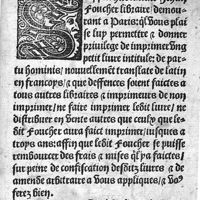 Foucher libraire demou-
rant a Paris: ql Vous plai
se luy permettre & donner
priuilege de imprimer Vng
petit liure intitule: de par-
tu hominis / nouuellemẽt translate de latin
en francoys / & que deffences soient faictes a
tous autres libraires & imprimeurs de non
imprimer / ne faire imprimer ledit liure / ne
distribuer en Vente autres que ceulx que le-
dit Foucher aura faict imprimer / iusques a
troys ans: affin que ledit Foucher se puisse
rembourcer des frais & mises ql y a faictes /
sur peine de confiscation desditz liures &
de amende arbitraire a Vous appliquer / & Vo9
ferez bien.